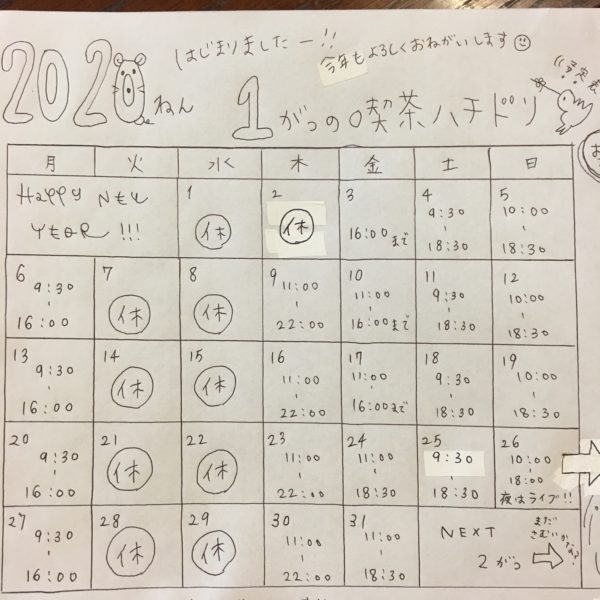 2020ねん
はじまりましたー!!
今年もよろしくおねがいします
1がつの喫茶ハチドリ
月 火 水 木 金 土 日
Happy NEW
YEAR!!!
1 2 3 4 5
休 休 16:00まで 9:30-18:30 10:00-18:30
6 7 8 9 10 11 12
9:30-16:00 休 休 11:00-22:00 11:00-16:00まで 9:30-18:30 10:00-18:30
13 14 15 16 17 18 19
9:30-16:00 休 休 11:00-22:00 11:00-16:00まで 9:30-18:30 10:00-18:30
20 21 22 23 24 25 26
9:30-16:00 休 休 11:00-22:00 11:00-18:30 9:30-18:30 10:00-18:00
夜はライブ!!
27 28 29 30 31
9:30-16:00 休 休 11:00-22:00 11:00-18:30
NEXT
2がつ
まだ
さむいかなぁ?